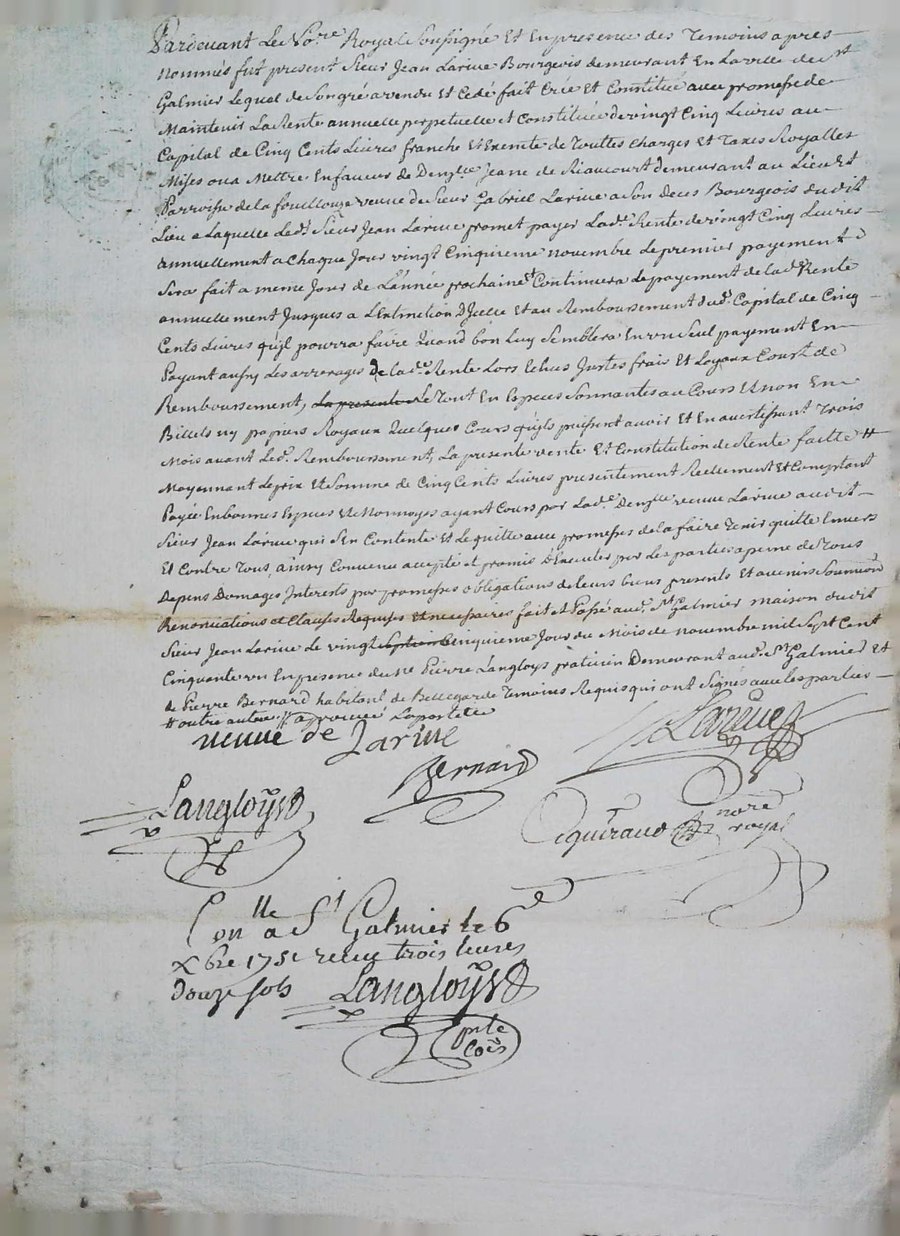 Pardevant Le No.re Royal Soussigné Et En presence des Temoins apres
nommés fut present Sieur Jean Larive Bourgeois demeurant En La ville de St
Galmier Lequel de Son gré a vendu Et Cedé fait Créé Et Constitué avec promesse de
Maintenir La Rente annuelle perpetuelle et Constituée de vingt Cinq Livres au
Capital de Cinq Cents Livres franche Et Exemte de Touttes Charges Et Taxes Royalles
Mises ou a Mettre En faveur de Demlle Jeane de Riaucourt demeurant au Lieu Et
Parroisse de la fouillouze veuve de Sieur Gabriel Larive a Son deces Bourgeois dudit
Lieu a Laquelle Led. Sieur Jean Larive promet payer Lade. Rente de vingt Cinq Livres
annuellement a Chaque Jour vingt Cinquieme novembre Le premier payement
Sera fait a meme Jour de L'année prochaine Et Continuera Le payement de lad. Rente
annuellement Jusques a L'Extinction D'Jcelle Et au Remboursement dud. Capital de Cinq
Cents Livres qu'jl pourra faire Quand bon Luy Semblera En un Seul payement En
Payant aussy Les arrerages De lade. Rente Lors Echus Justes frais Et Loyaux Couts de
Remboursement, La presente Le Tout En Especes Sonnantes au Cours Et non En
Billets ny papiers Royaux Quelques Cours qu'jls puissent avoir Et En avertissant Trois
Mois avant Led. Remboursement, La presente vente Et Constitution de Rente faitte #
Moyennant Le prix Et Somme de Cinq Cents Livres presentement Reellement Et Comptant
Payée En bonnes Especes Et Monnoyes ayant Cours par Lade. Demlle veuve Larive audit
Sieur Jean Larive qui S'En Contente Et Le quitte avec promesses de la faire Tenir quitte Envers
Et Contre Tous, ainsy Convenu accepté et promis D'Executer par Les parties a peine de Tous
Depens Domages Interests par promesses obligations de leurs biens presents Et avenir Soumissions
Renonciations et Clauses Requises Et necessaires fait et Passé aud. St Galmier maison dudit
Sieur Jean Larive Le vingt Cinquieme Jour du Mois de novembre mil Sept Cent
Cinquante un En presence de Me Pierre Langloys praticien Demeurant aud. St Galmier Et
de Pierre Bernard habitant de Bellegarde Temoins Requis qui ont Signés avec les parties
veuve de Larive
Larive
Bernard
Langloys
nore
royal
Conlle a St Galmier le 6e
Xbre 1751 receu trois livres
douze sols Langloys